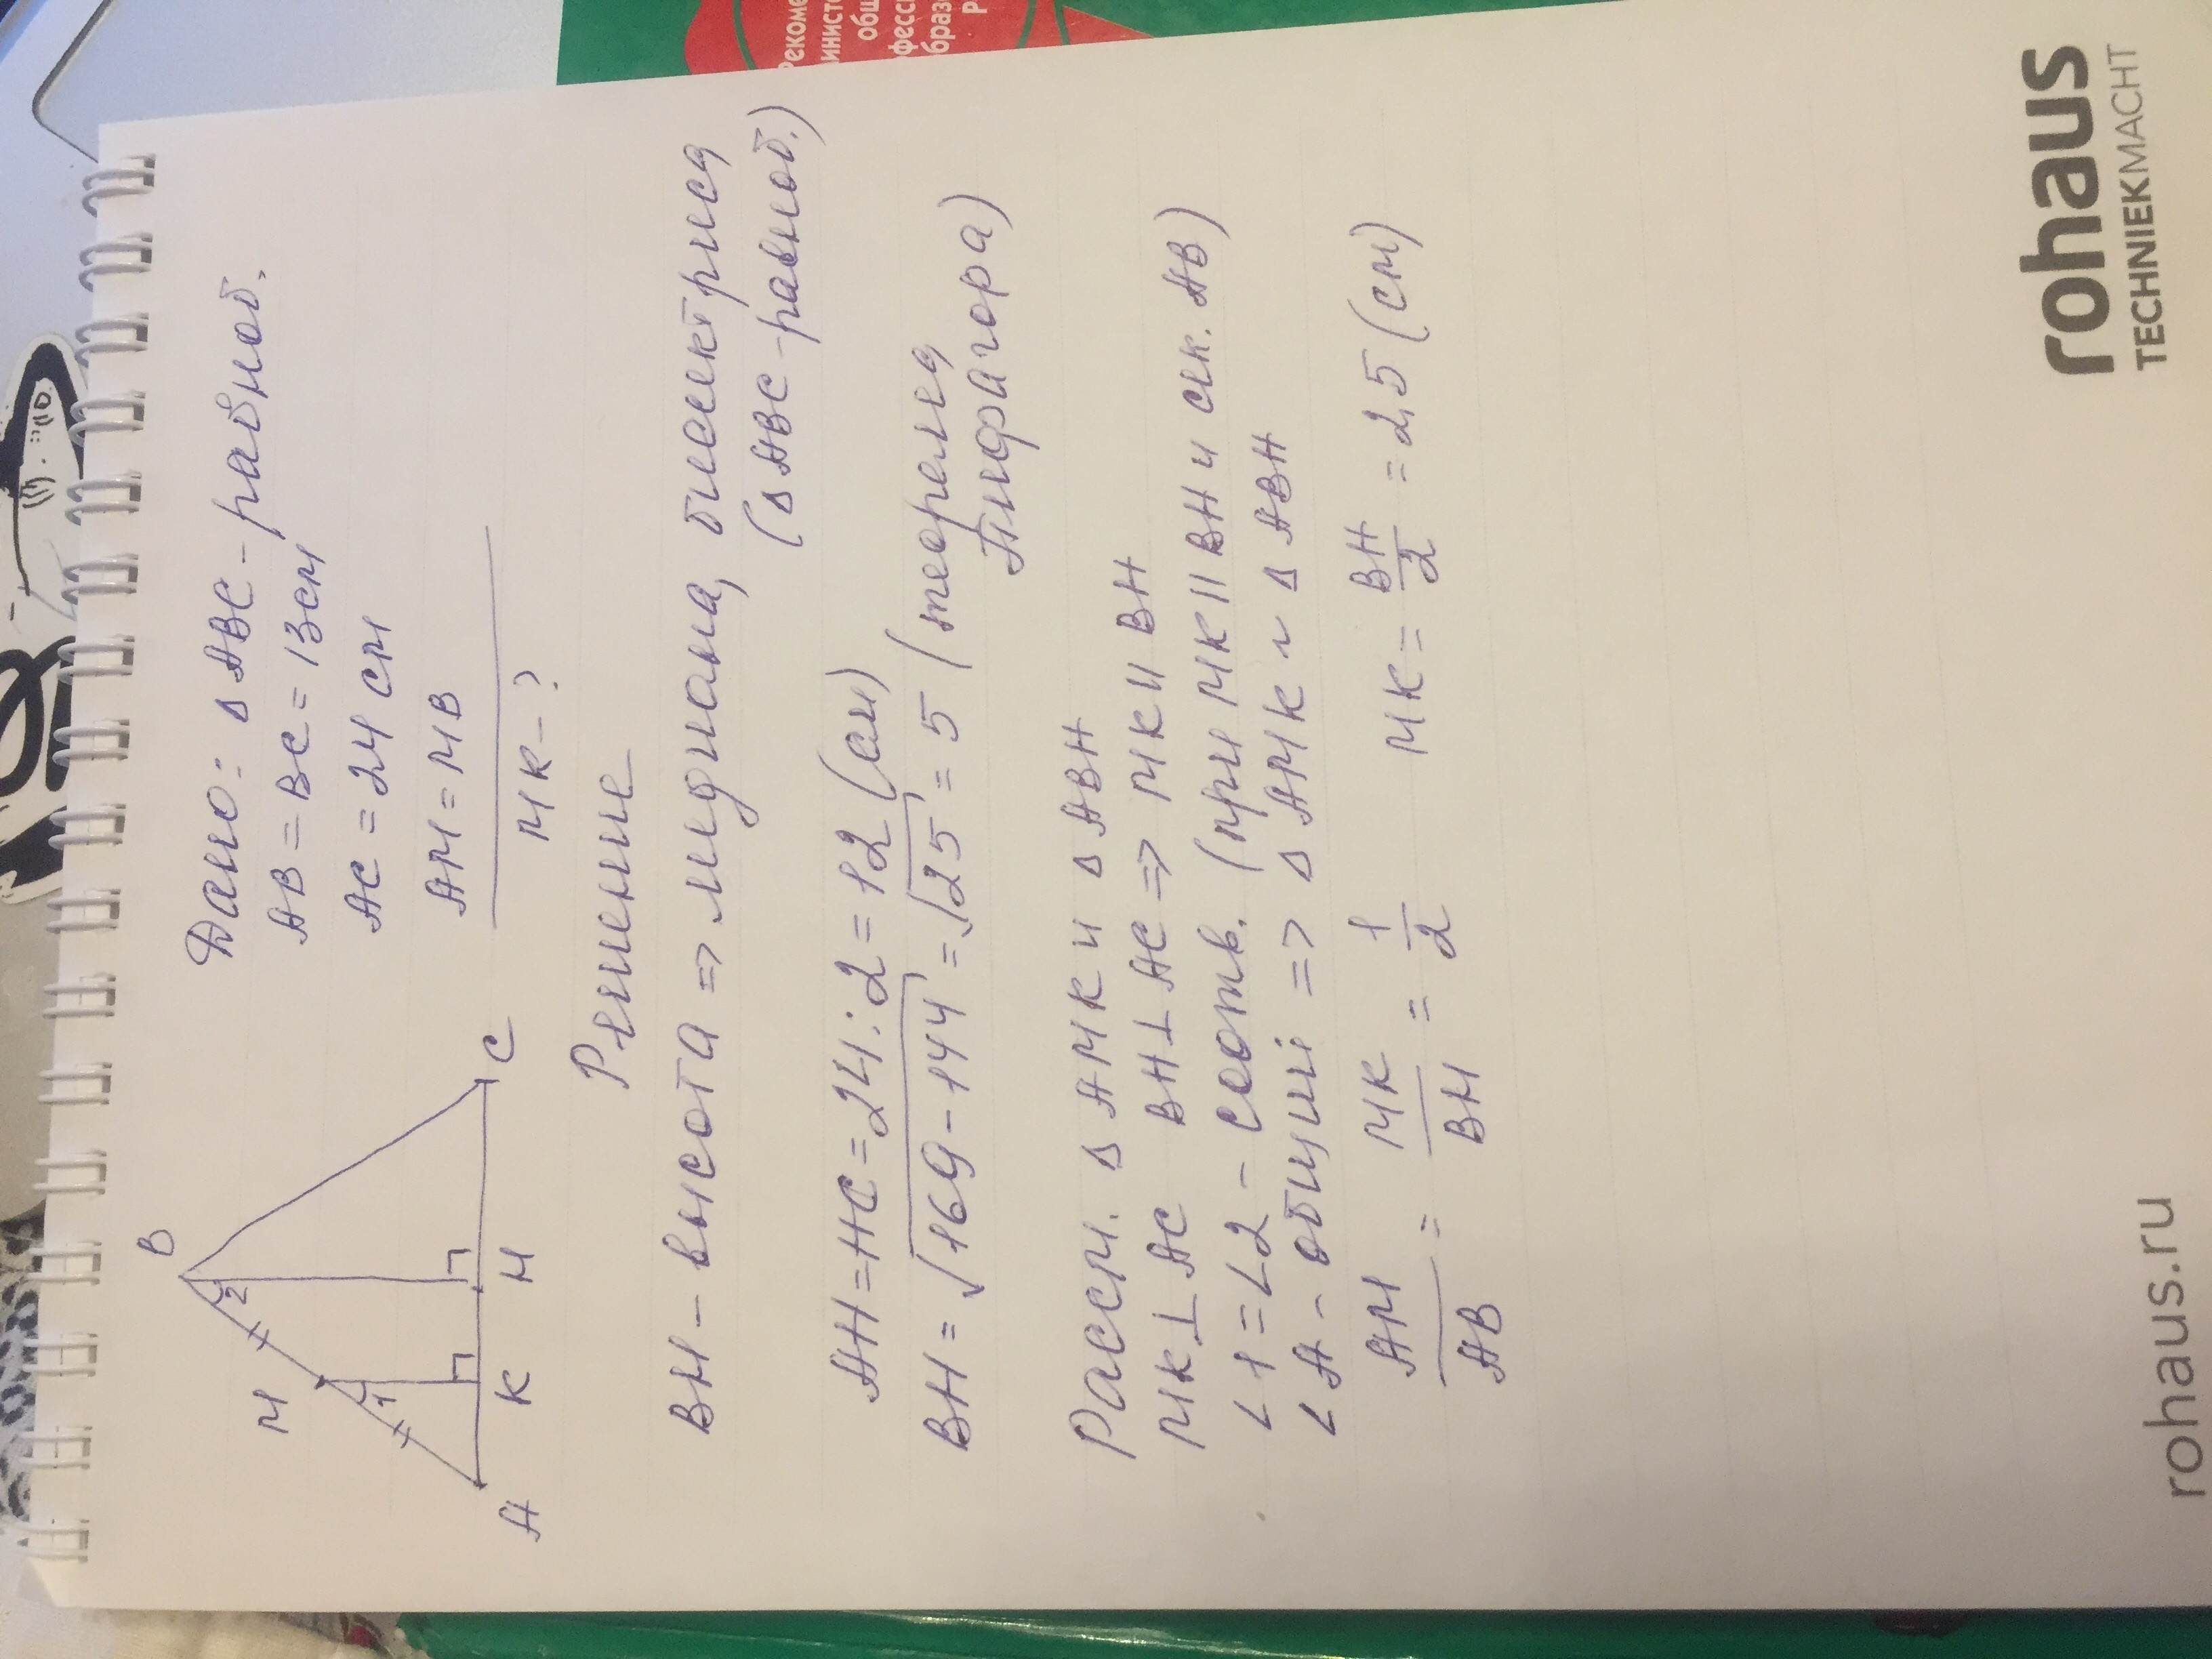 Дано: Δ ABC - равноб.
AB = BC = 13 см
AC = 24 см
AM = MB
MK - ?
B
M
2
1
A
K
H
C
Решение
BH - высота => медиана, биссектриса
(Δ ABC - равноб.)
AH = HC = 24 : 2 = 12 (см)
BH = √169 - 144 = √25 = 5 (теорема
Пифагора)
Рассм. Δ AMK и Δ ABH
MK ⊥ AC BH ⊥ AC => MK || BH
∠1 = ∠2 - соотв. (при MK || BH и сек. AB)
∠A - общий => Δ AMK ~ Δ ABH
AM/AB = MK/BH = 1/2 MK = BH/2 = 2,5 (см)
rohaus.ru
rohaus
TECHNIEKMACHT
Рекоме
инист
общ
фесс
браз
Р